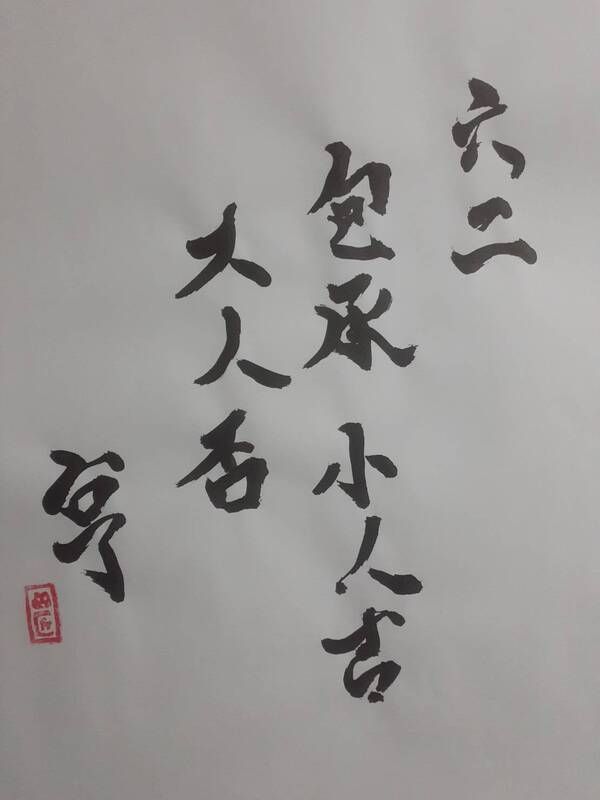 六二
包承 小人吉
大人否
亨